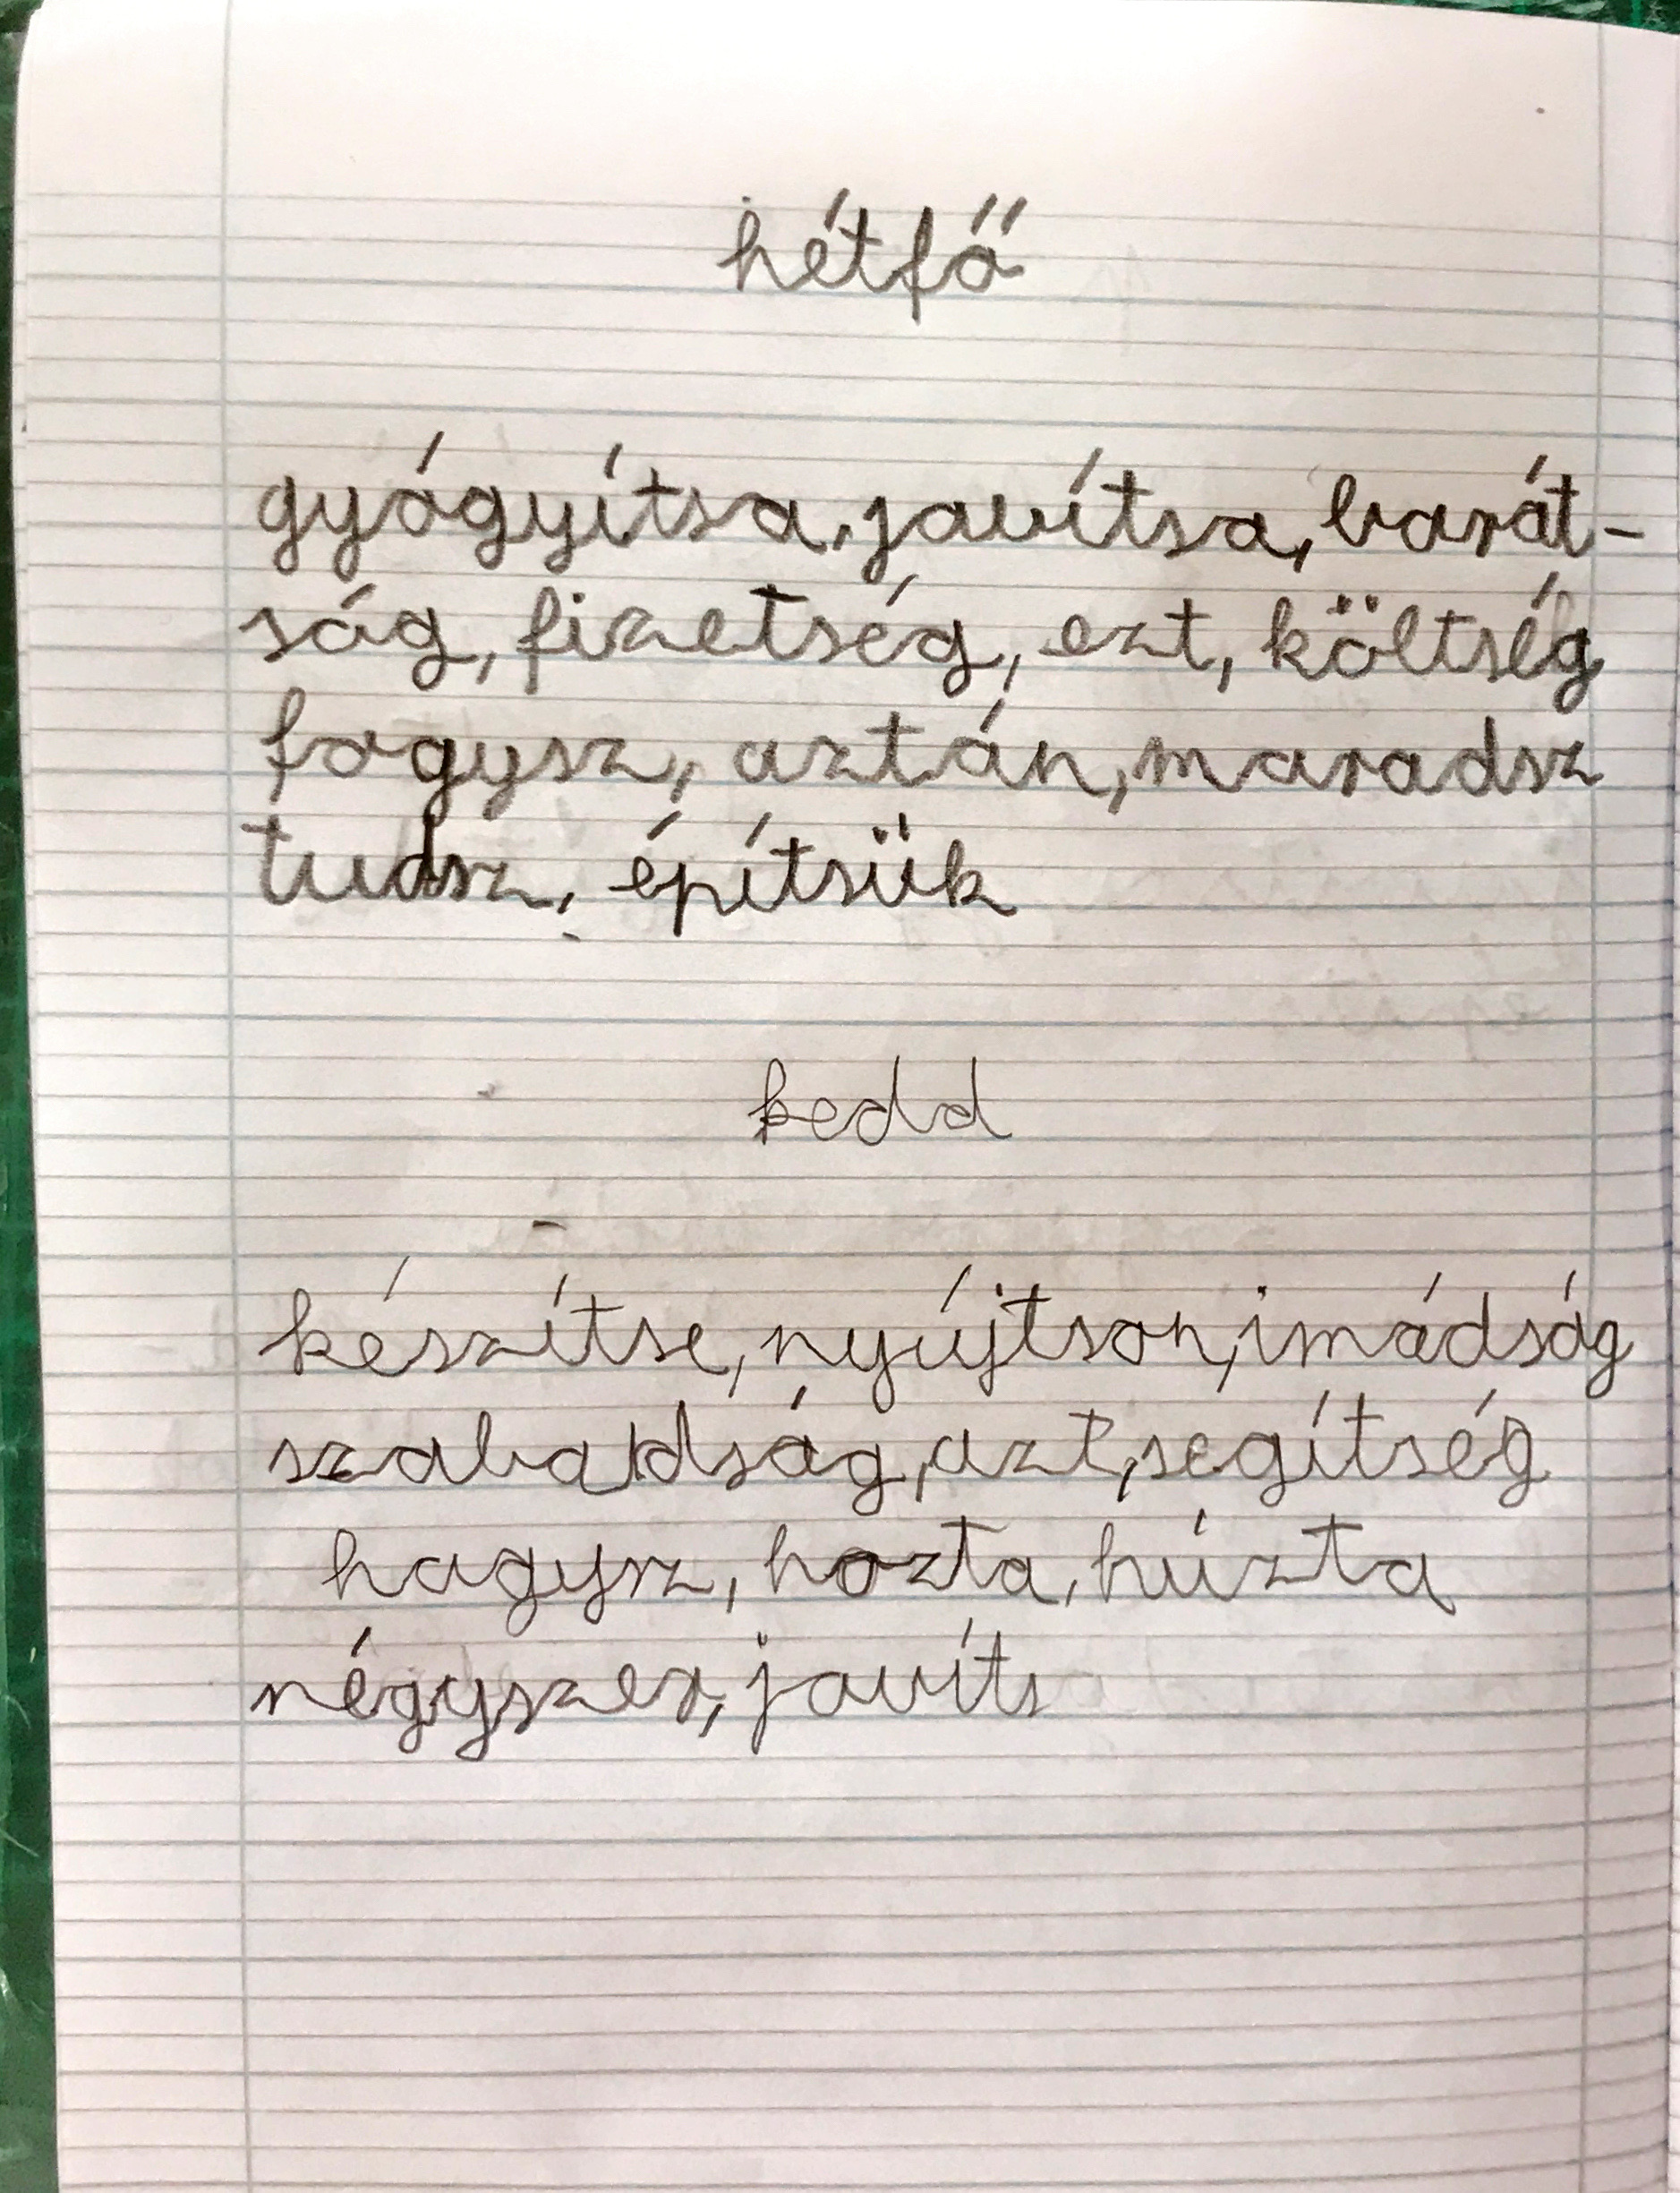 hétfő
gyógyítsa, javítsa, barát-
ság, fizetség, ezt, költség
fogysz, aztán, maradsz
tudsz, építsük
kedd
készítse, nyújtson, imádság
szabadság, azt, segítség
hagysz, hozta, húzta
négyszer, javíts